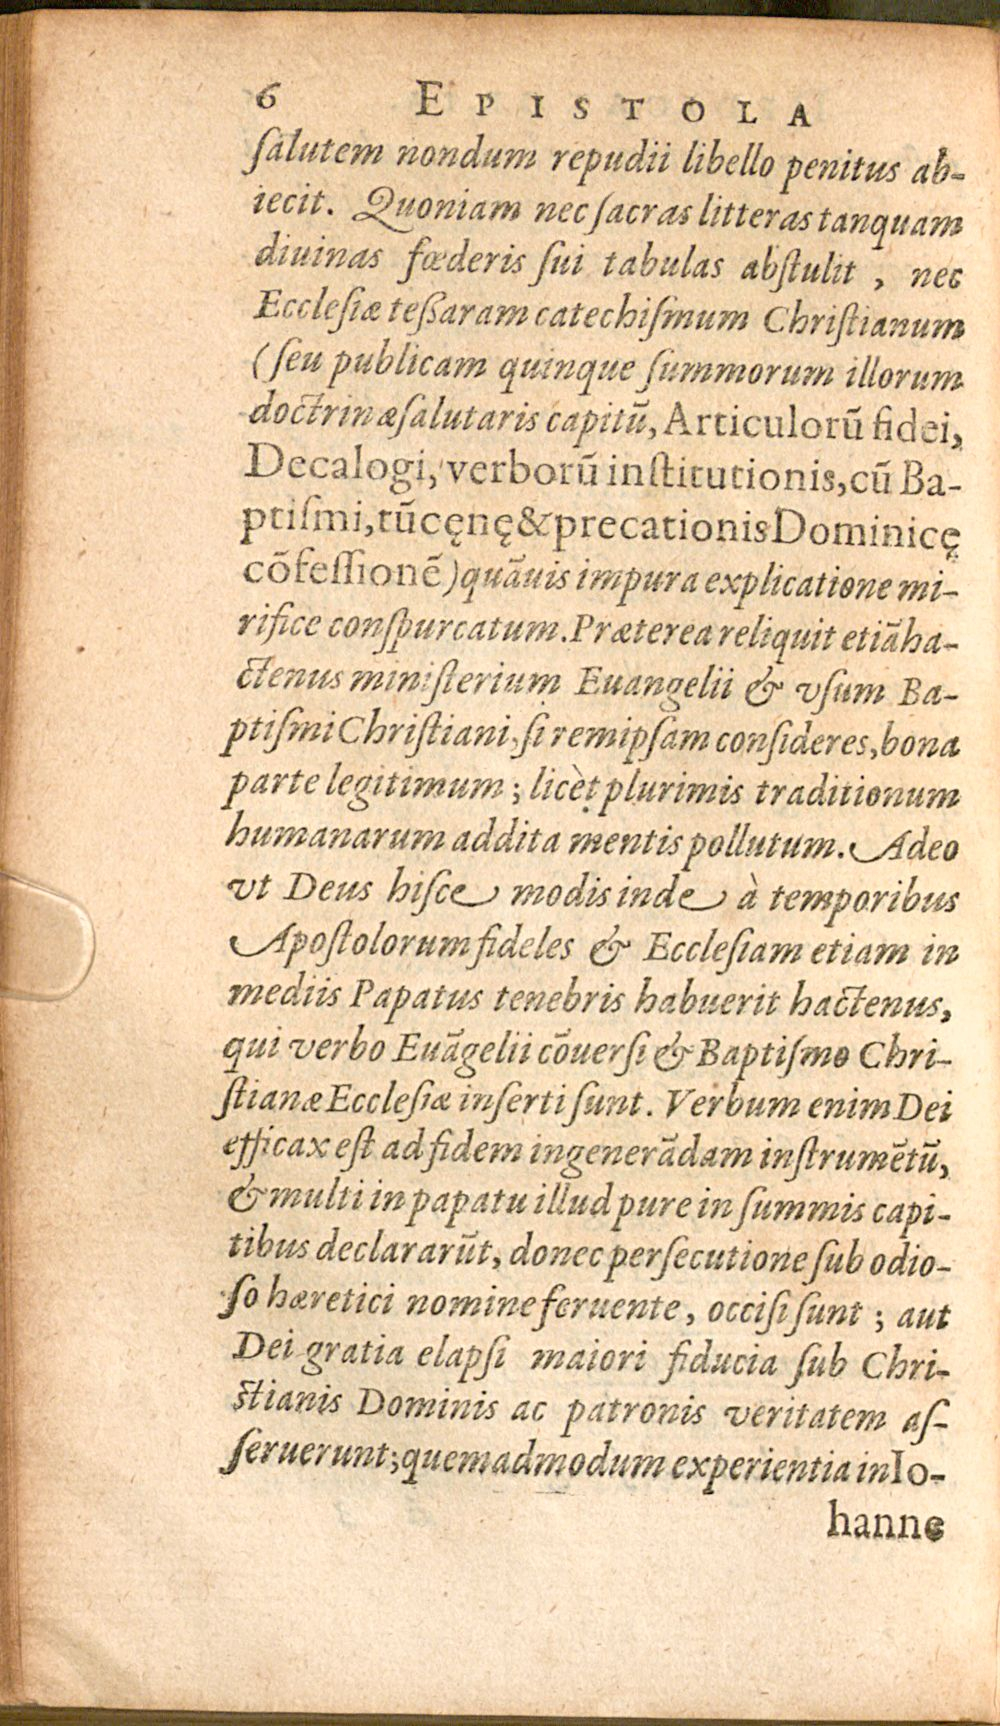 6 EPISTOLA
ſalutem nondum repudii libello penitus ab-
iecit. Quoniam nec ſacras litteras tanquam
diuinas fœderis ſui tabulas abſtulit, nec
Eccleſiæ teßaram catechiſmum Chriſtianum
(ſeu publicam quinque ſummorum illorum
doctrinæ ſalutaris capitũ, Articulorũ fidei,
Decalogi, verborũ inſtitutionis, cũ Ba-
ptiſmi, tũ cęnę & precationis Dominicę
cõfeſſionẽ) quãuis impura explicatione mi-
rifice conſpurcatum. Præterea reliquit etiã ha-
ctenus miniſterium Euangelii & vſum Ba-
ptiſmi Chriſtiani, ſi rem ipſam conſideres, bona
parte legitimum; licèt plurimis traditionum
humanarum addita mentis pollutum. Adeo
vt Deus hiſce modis inde à temporibus
Apoſtolorum fideles & Eccleſiam etiam in
mediis Papatus tenebris habuerit hactenus,
qui verbo Euãgelii cõuerſi & Baptiſmo Chri-
ſtianæ Eccleſiæ inſerti ſunt. Verbum enim Dei
efficax eſt ad fidem ingenerãdam inſtrumẽtũ,
& multi in papatu illud pure in ſummis capi-
tibus declararũt, donec perſecutione ſub odio-
ſo hæretici nomine feruente, occiſi ſunt; aut
Dei gratia elapſi maiori fiducia ſub Chri-
ſtianis Dominis ac patronis veritatem aſ-
ſeruerunt; quemadmodum experientia in Io-
hanne